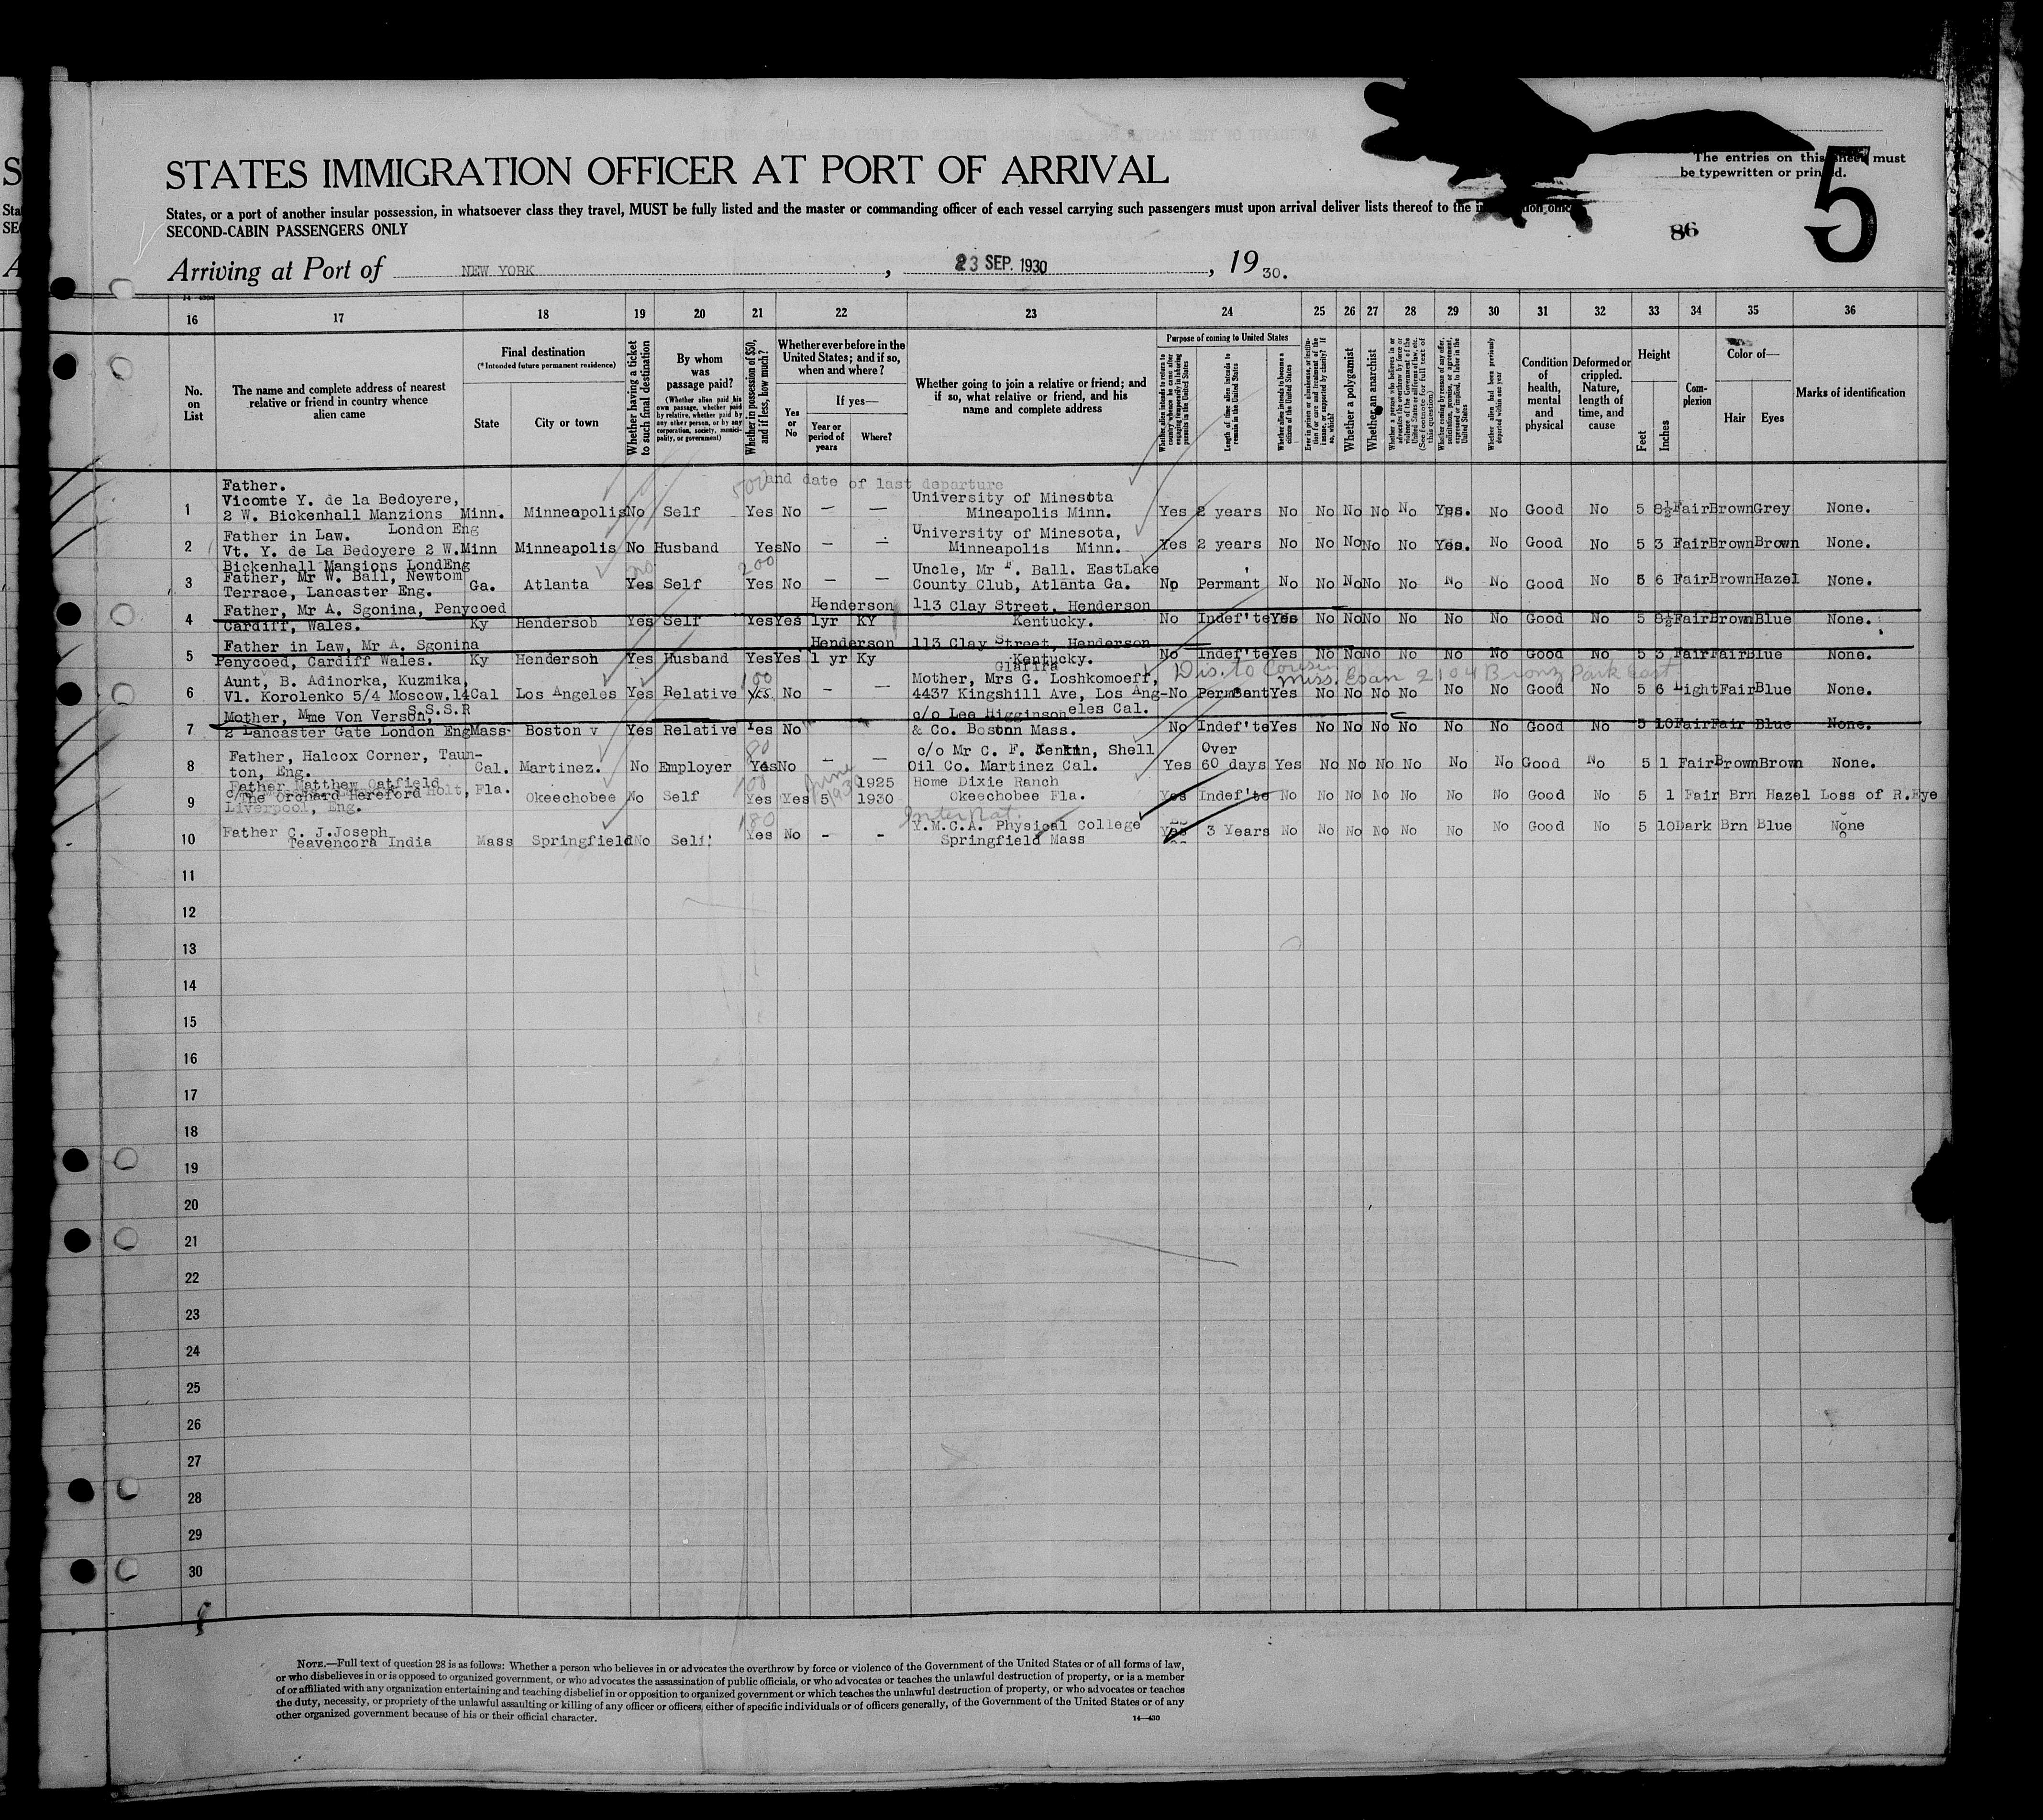 STATES IMMIGRATION OFFICER AT PORT OF ARRIVAL
The entries on this sheet must
be typewritten or printed.
5
States, or a port of another insular possession, in whatsoever class they travel, MUST be fully listed and the master or commanding officer of each vessel carrying such passengers must upon arrival deliver lists thereof to the
SECOND-CABIN PASSENGERS ONLY
86
Arriving at Port of NEW YORK , 23 SEP. 1930 , 19 30.
16 17 18 19 20 21 22 23 24 25 26 27 28 29 30 31 32 33 34 35 36
No. on List
The name and complete address of nearest relative or friend in country whence alien came
Final destination
(*Intended future permanent residence)
State
City or town
Whether having a ticket to such final destination
By whom was passage paid?
(Whether alien paid his own passage, whether paid by relative, whether paid by any other person, or by any corporation, society, munici-pality, or government)
Whether in possession of $50, and if less, how much?
Whether ever before in the United States; and if so, when and where?
Yes or No
If yes—
Year or period of years
Where?
Whether going to join a relative or friend; and if so, what relative or friend, and his name and complete address
Purpose of coming to United States
Whether alien intends to return to country whence he came after engaging temporarily in laboring pursuits in the United States
Length of time alien intends to remain in the United States
Whether alien intends to become a citizen of the United States
Whether a polygamist
Whether an anarchist
Whether alien had been previously deported within one year
Condition of health, mental and physical
Deformed or crippled. Nature, length of time, and cause
Height
Feet
Inches
Com-plexion
Color of—
Hair
Eyes
Marks of identification
500 and date of last departure
Father.
Vicomte Y. de la Bedoyere, University of Minesota
1 2 W. Bickenhall Manzions Minn. Minneapolis No Self Yes No — — Mineapolis Minn. Yes 2 years No No No No No Yes. No Good No 5 8½ Fair Brown Grey None.
London Eng
Father in Law. University of Minesota,
2 Vt. Y. de La Bedoyere 2 W. Minn Minneapolis No Husband Yes No — — Minneapolis Minn. Yes 2 years No No No No No Yes. No Good No 5 3 Fair Brown Brown None.
Bickenhall Mansions LondEng 200
Father, Mr W. Ball, Newtom Uncle, Mr F. Ball. EastLake
3 Terrace, Lancaster Eng. Ga. Atlanta Yes Self Yes No — — County Club, Atlanta Ga. No Permant No No No No No No No Good No 5 6 Fair Brown Hazel None.
Father, Mr A. Sgonina, Penycoed Henderson 113 Clay Street, Henderson
4 Cardiff, Wales. Ky Hendersob Yes Self Yes Yes 1yr KY Kentucky. No Indef'te Yes No No No No No No Good No 5 8½ Fair Brown Blue None.
Father in Law, Mr A. Sgonina Henderson 113 Clay Street, Henderson
5 Penycoed, Cardiff Wales. Ky Henderson Yes Husband Yes Yes 1 yr Ky Kentucky. No Indef'te Yes No No No No No No Good No 5 3 Fair Fair Blue None.
Glafira
Dis. to Cousin Miss. Epan 2104 Bronx Park East
Aunt, B. Adinorka, Kuzmika, 100 Mother, Mrs G. Loshkomoeff,
6 Vl. Korolenko 5/4 Moscow.14 Cal Los Angeles Yes Relative Yes. No - - 4437 Kingshill Ave, Los Ang- No Permant Yes No No No No No No Good No 5 6 Light Fair Blue None.
S.S.S.R eles Cal.
Mother, Mme Von Verson, c/o Lee Higginson
7 2 Lancaster Gate London Eng Mass. Boston Yes Relative Yes No & Co. Boston Mass. No Indef'te Yes No No No No No No Good No 5 10 Fair Fair Blue None.
80
Father, Halcox Corner, Taun- c/o Mr C. F. Jenkin, Shell Over
8 ton, Eng. Cal. Martinez. No Employer Yes No — — Oil Co. Martinez Cal. Yes 60 days Yes No No No No No No Good No 5 1 Fair Brown Brown None.
Father Matthew Oatfield 100 June 1930 1925 Home Dixie Ranch
9 The Orchard Hereford Holt, Fla. Okeechobee No Self Yes Yes 5 1930 Okeechobee Fla. Yes Indef'te No No No No No No No Good No 5 1 Fair Brn Hazel Loss of R.Eye
Liverpool, Eng.
180 Internat.
Father C. J.Joseph Y.M.C.A. Physical College
10 Teavencora India Mass Springfield No Self Yes No - - Springfield Mass Yes 3 Years No No No No No No No Good No 5 10 Dark Brn Blue None
11
12
13
14
15
16
17
18
19
20
21
22
23
24
25
26
27
28
29
30
NOTE.—Full text of question 28 is as follows: Whether a person who believes in or advocates the overthrow by force or violence of the Government of the United States or of all forms of law,
or who disbelieves in or is opposed to organized government, or who advocates the assassination of public officials, or who advocates or teaches the unlawful destruction of property, or is a member
of or affiliated with any organization entertaining and teaching disbelief in or opposition to organized government or which teaches the unlawful destruction of property, or who advocates or teaches
the duty, necessity, or propriety of the unlawful assaulting or killing of any officer or officers, either of specific individuals or of officers generally, of the Government of the United States or of any
other organized government because of his or their official character.
14—430